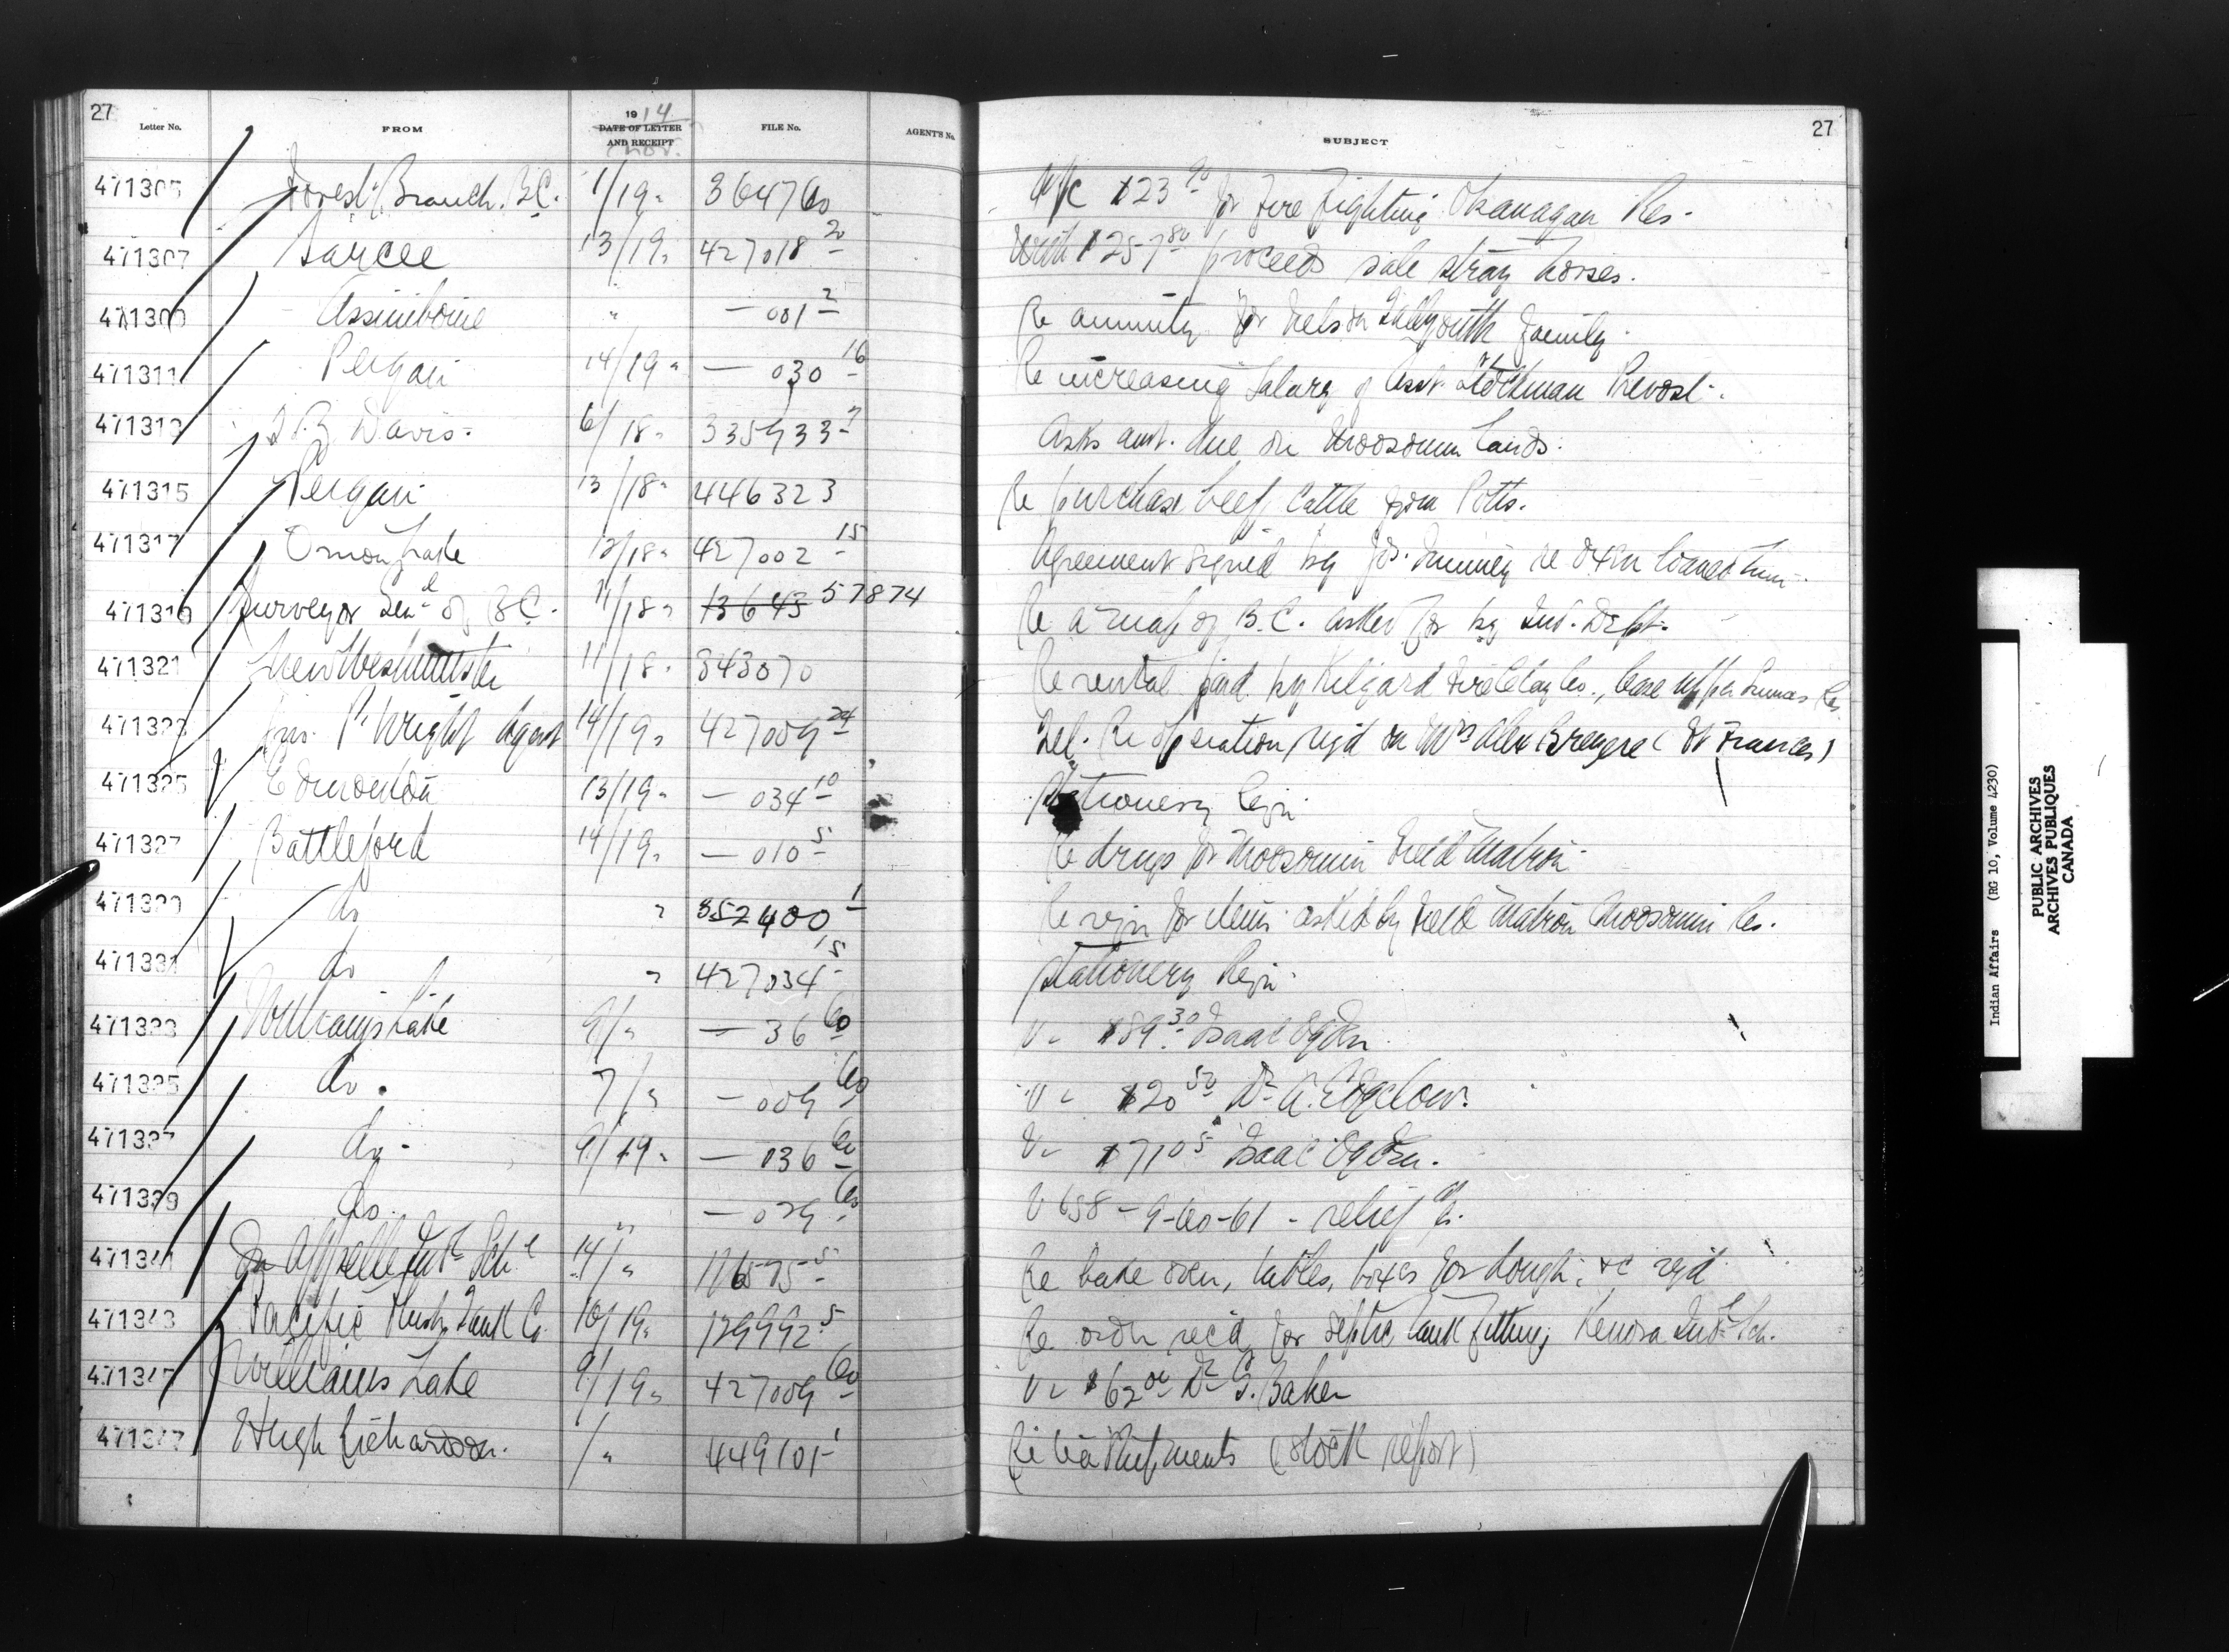 27
Letter No. FROM 1914 DATE OF LETTER AND RECEIPT Nov. FILE No. AGENT'S No. SUBJECT 27
471305 Forest Branch. B.C. 1/19 " 36476 A/c $23 for Fire Fighting Okanagan Res.
471307 Sarcee 13/19 " 427018 20 With $257 80 proceeds sale stray horses.
Assiniboine " — 001 2 Re annuity for Nelson family.
471311 Peigan 14/19 " — 030 16 Re increasing Salary of Asst. Stockman Prevost.
Davis. 6/18 " 335933 2 Asks amt. due on Moosomin lands.
471315 Peigan 13/18 " 446323 Re purchase beef cattle from Potts.
471317 Onion Lake 12/18 " 427002 15 Agreement signed by re oxen loaned him.
471319 Surveyor Genl of B.C. 11/18 " 13643 57874 Re a map of B.C. asked for by Ind. Dept.
471321 New Westminster 11/18 " 343070 Re rental paid by Kilgard Fire Clay Co., lease upper Sumas Res
471323 Jno. P. Wright Agent 14/19 " 427009 24 Tel. Re operation reqd on Mrs Alex (Ft Frances)
471325 Edmonton 13/19 " — 034 10 Stationery Reqn.
471327 Battleford 14/19 " — 010 5 Re drugs for Moosomin Field Matron.
471329 do " 352400 1 Re reqn for items asked by Field Matron Moosomin Res.
471331 do " 427034 15 Stationery Reqn.
471333 Williams Lake 9/ " — 36 60 V — $89 30 Isaac Ogden.
471335 do. 7/ " — 009 60 V — $20 50 Dr A.
471337 do — 9/19 " — 036 60 V — $71 05 Isaac Ogden.
471339 do. " — 029 60 V 658 - 9 - 60 - 61 - relief a/c.
471341 Qu Appelle Indl Schl 14/ " 116575 5 Re bake oven, tables, boxes for dough, &c reqd
471343 Pacific Flush Tank Co 10/19 " 129992 5 Re order recd for septic tank fittings Kenora Indl Sch.
471345 Williams Lake 9/19 " 427009 60 V — $62 00 Dr G. Baker
471347 Hugh Richardson. / " 449101 1 Re (stock report)
Indian Affairs (RG 10, Volume 4230)
PUBLIC ARCHIVES
ARCHIVES PUBLIQUES
CANADA